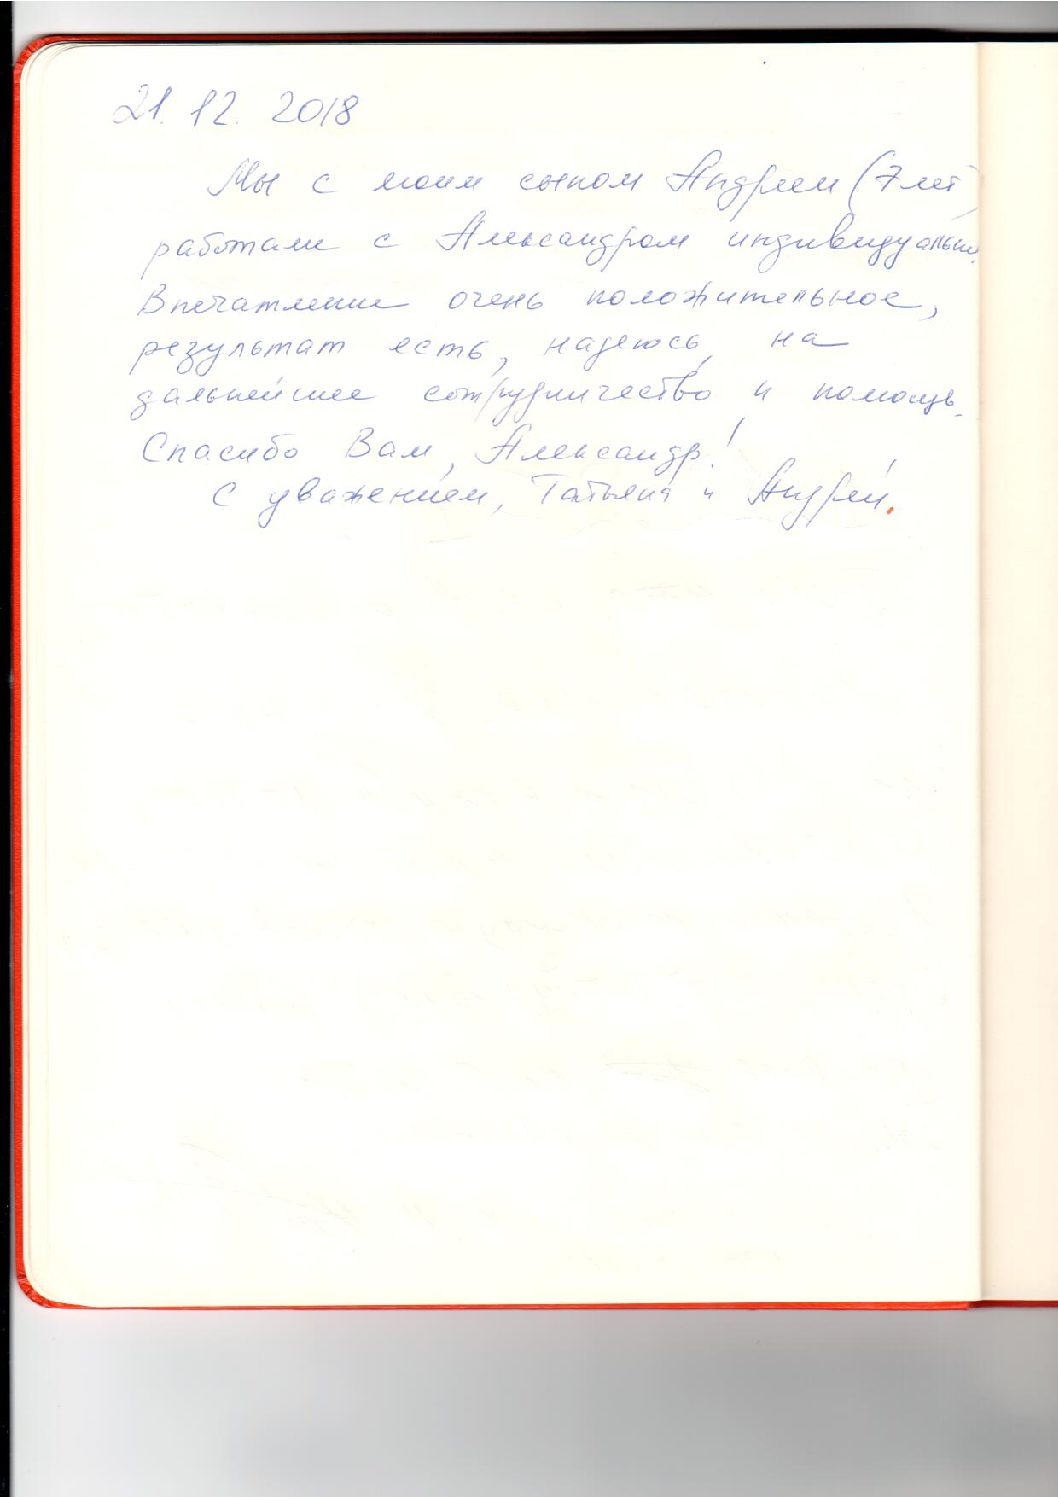 21.12.2018
Мы с моим сыном Андреем (7 лет)
работали с Александром индивидуально.
Впечатление очень положительное,
результат есть, надеюсь, на
дальнейшее сотрудничество и помощь.
Спасибо Вам, Александр!
С уважением, Татьяна и Андрей!